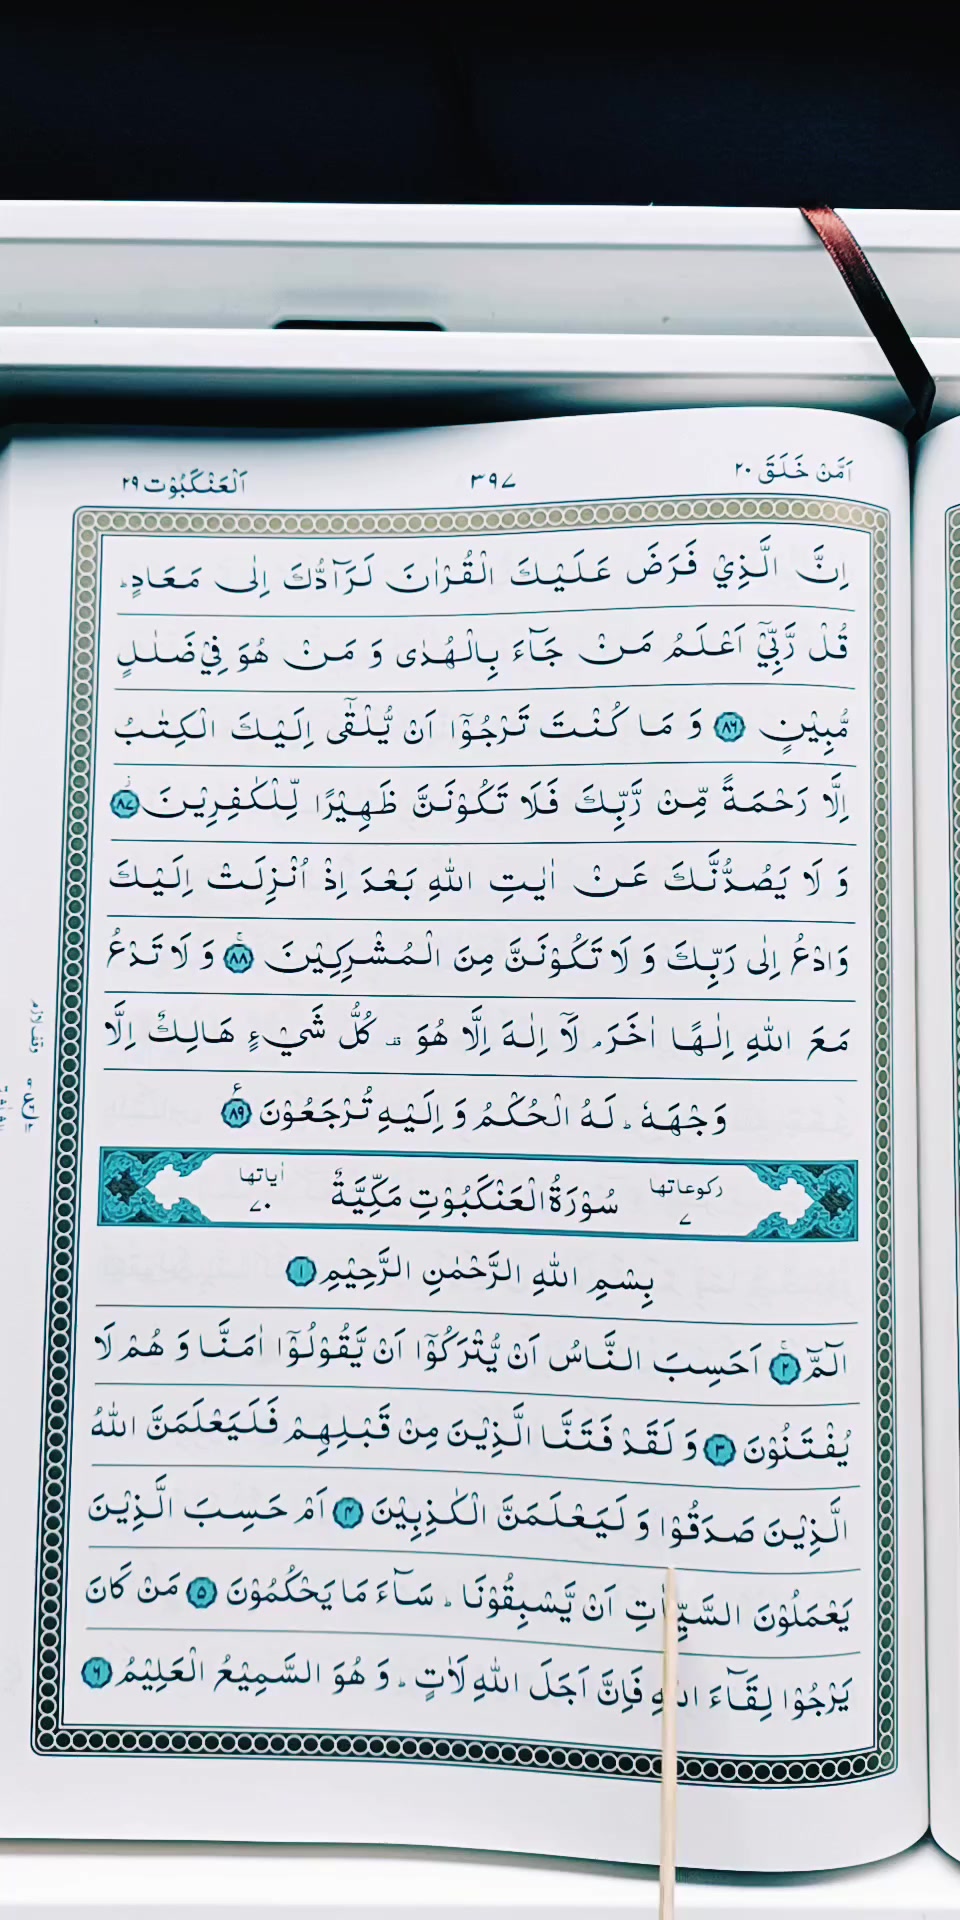 اَمَّنْ خَلَقَ ٢٠
٣٩٧
اَلْعَنْكَبُوْت ٢٩
اِنَّ الَّذِيْ فَرَضَ عَلَيْكَ الْقُرْاٰنَ لَرَآدُّكَ اِلٰى مَعَادٍ ؕ
قُلْ رَّبِّيْٓ اَعْلَمُ مَنْ جَآءَ بِالْهُدٰى وَ مَنْ هُوَ فِيْ ضَلٰلٍ
مُّبِيْنٍ ٨٦ وَ مَا كُنْتَ تَرْجُوْٓا اَنْ يُّلْقٰٓى اِلَيْكَ الْكِتٰبُ
اِلَّا رَحْمَةً مِّنْ رَّبِّكَ فَلَا تَكُوْنَنَّ ظَهِيْرًا لِّلْكٰفِرِيْنَ ٨٧
وَ لَا يَصُدُّنَّكَ عَنْ اٰيٰتِ اللّٰهِ بَعْدَ اِذْ اُنْزِلَتْ اِلَيْكَ
وَادْعُ اِلٰى رَبِّكَ وَ لَا تَكُوْنَنَّ مِنَ الْمُشْرِكِيْنَ ٨٨ وَ لَا تَدْعُ
مَعَ اللّٰهِ اِلٰهًا اٰخَرَ ۘ لَآ اِلٰهَ اِلَّا هُوَ ۫ كُلُّ شَيْءٍ هَالِكٌ اِلَّا
وَجْهَهٗ ؕ لَهُ الْحُكْمُ وَ اِلَيْهِ تُرْجَعُوْنَ ٨٩
ركوعاتها ٧
سُوْرَةُ الْعَنْكَبُوْتِ مَكِّيَّةٌ
اٰياتها ٧٠
بِسْمِ اللّٰهِ الرَّحْمٰنِ الرَّحِيْمِ ١
الٓمّٓ ٢ اَحَسِبَ النَّاسُ اَنْ يُّتْرَكُوْٓا اَنْ يَّقُوْلُوْٓا اٰمَنَّا وَ هُمْ لَا
يُفْتَنُوْنَ ٣ وَ لَقَدْ فَتَنَّا الَّذِيْنَ مِنْ قَبْلِهِمْ فَلَيَعْلَمَنَّ اللّٰهُ
الَّذِيْنَ صَدَقُوْا وَ لَيَعْلَمَنَّ الْكٰذِبِيْنَ ٤ اَمْ حَسِبَ الَّذِيْنَ
يَعْمَلُوْنَ السَّيِّاٰتِ اَنْ يَّسْبِقُوْنَا ؕ سَآءَ مَا يَحْكُمُوْنَ ٥ مَنْ كَانَ
يَرْجُوْا لِقَآءَ اللّٰهِ فَاِنَّ اَجَلَ اللّٰهِ لَاٰتٍ ؕ وَ هُوَ السَّمِيْعُ الْعَلِيْمُ ٦